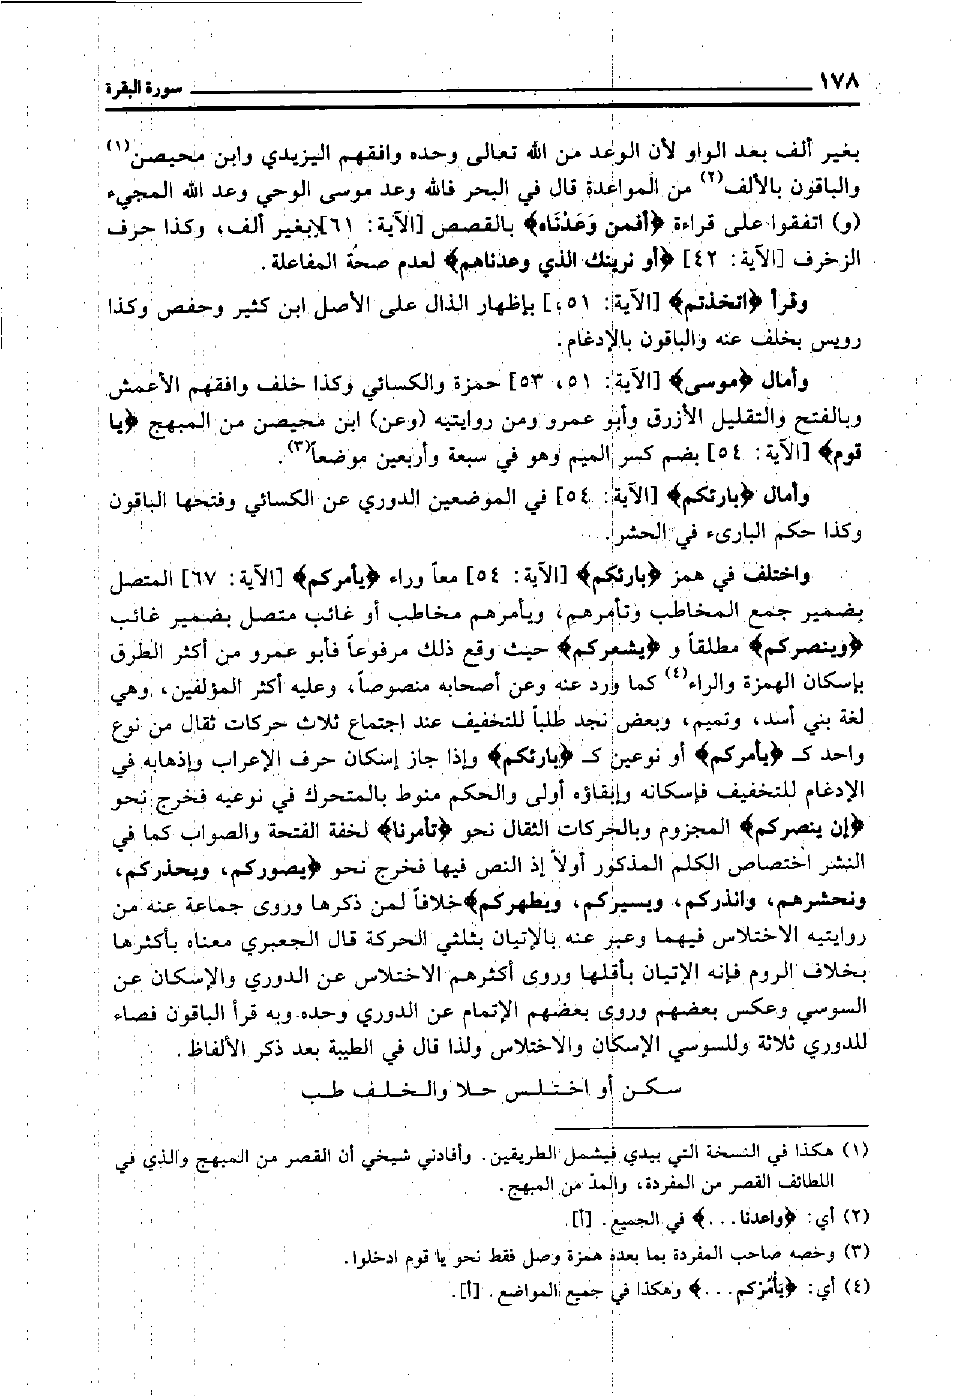 ١٧٨ سورة البقرة
بغير ألف بعد الواو لأن الوعد من الله تعالى وحده وافقهم اليزيدي وابن محيصن(١)
والباقون بالألف(٢) من المواعدة قال في البحر فالله وعد موسى الوحي وعد الله المجيء
(و) اتفقوا على قراءة ﴿أفمن وَعَدْنَاه﴾ بالقصص [الآية: ٦١] بغير ألف، وكذا حرف
الزخرف [الآية: ٤٢] ﴿أو نرينك الذي وعدناهم﴾ لعدم صحة المفاعلة.
وقرأ ﴿اتخذتم﴾ [الآية: ٥١،] بإظهار الذال على الأصل ابن كثير وحفص وكذا
رويس بخلف عنه والباقون بالإدغام.
وأمال ﴿موسى﴾ [الآية: ٥١، ٥٣] حمزة والكسائي وكذا خلف وافقهم الأعمش
وبالفتح والتقليل الأزرق وأبو عمرو ومن روايتيه (وعن) ابن محيصن من المبهج ﴿يا
قوم﴾ [الآية: ٥٤] بضم كسر الميم وهو في سبعة وأربعين موضعاً(٣).
وأمال ﴿بارئكم﴾ [الآية: ٥٤] في الموضعين الدوري عن الكسائي وفتحها الباقون
وكذا حكم البارىء في الحشر.
واختلف في همز ﴿بارئكم﴾ [الآية: ٥٤] معاً وراء ﴿يأمركم﴾ [الآية: ٦٧] المتصل
بضمير جمع المخاطب وتأمرهم، ويأمرهم مخاطب أو غائب متصل بضمير غائب
﴿وينصركم﴾ مطلقاً و ﴿يشعركم﴾ حيث وقع ذلك مرفوعاً فأبو عمرو من أكثر الطرق
بإسكان الهمزة والراء(٤) كما ورد عنه وعن أصحابه منصوصاً، وعليه أكثر المؤلفين، وهي
لغة بني أسد، وتميم، وبعض نجد طلباً للتخفيف عند اجتماع ثلاث حركات ثقال من نوع
واحد كـ ﴿يأمركم﴾ أو نوعين كـ ﴿بارئكم﴾ وإذا جاز إسكان حرف الإعراب وإذهابه في
الإدغام للتخفيف فإسكانه وإبقاؤه أولى والحكم منوط بالمتحرك في نوعيه فخرج نحو
﴿إن ينصركم﴾ المجزوم وبالحركات الثقال نحو ﴿تأمرنا﴾ لخفة الفتحة والصواب كما في
النشر اختصاص الكلم المذكور أولاً إذ النص فيها فخرج نحو ﴿يصوركم، ويحذركم،
ونحشرهم، وانذركم، ويسيركم، ويطهركم﴾ خلافاً لمن ذكرها وروى جماعة عنه من
روايتيه الاختلاس فيهما وعبر عنه بالإتيان بثلثي الحركة قال الجعبري معناه بأكثرها
بخلاف الروم فإنه الإتيان بأقلها وروى أكثرهم الاختلاس عن الدوري والإسكان عن
السوسي وعكس بعضهم وروى بعضهم الإتمام عن الدوري وحده وبه قرأ الباقون فصاء
للدوري ثلاثة وللسوسي الإسكان والاختلاس ولذا قال في الطيبة بعد ذكر الألفاظ.
سكـن أو اختـلـس حـلا والـخـلـف طـب
(١) هكذا في النسخة التي بيدي فيشمل الطريقين. وأفادني شيخي أن القصر من المبهج والذي في
اللطائف القصر من المفردة، والمدّ من المبهج.
(٢) أي: ﴿واعدنا...﴾ في الجميع. [أ].
(٣) وخصه صاحب المفردة بما بعده همزة وصل فقط نحو يا قوم ادخلوا.
(٤) أي: ﴿يَأْمُرْكم...﴾ وهكذا في جميع المواضع. [أ].